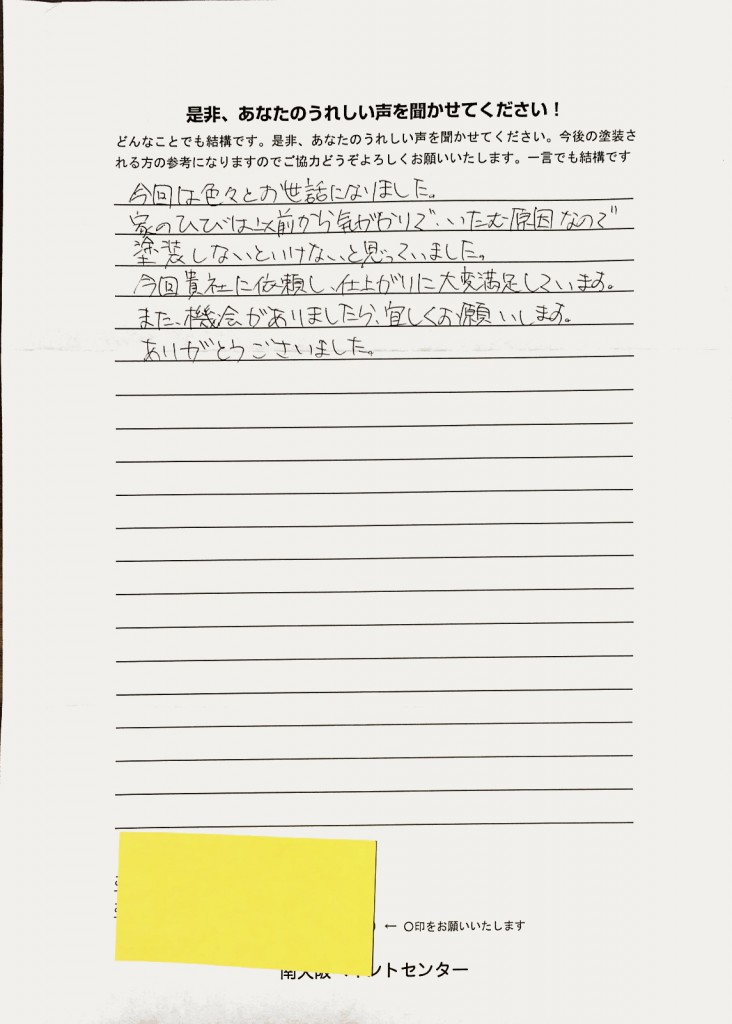 是非、あなたのうれしい声を聞かせてください！
どんなことでも結構です。是非、あなたのうれしい声を聞かせてください。今後の塗装さ
れる方の参考になりますのでご協力どうぞよろしくお願いいたします。一言でも結構です
今回は色々とお世話になりました。
家のひびは以前から気がかりで、いたむ原因なので
塗装しないといけないと思っていました。
今回貴社に依頼し、仕上がりに大変満足しています。
また、機会がありましたら、宜しくお願いします。
ありがとうございました。
← 〇印をお願いいたします
南大阪ペイントセンター